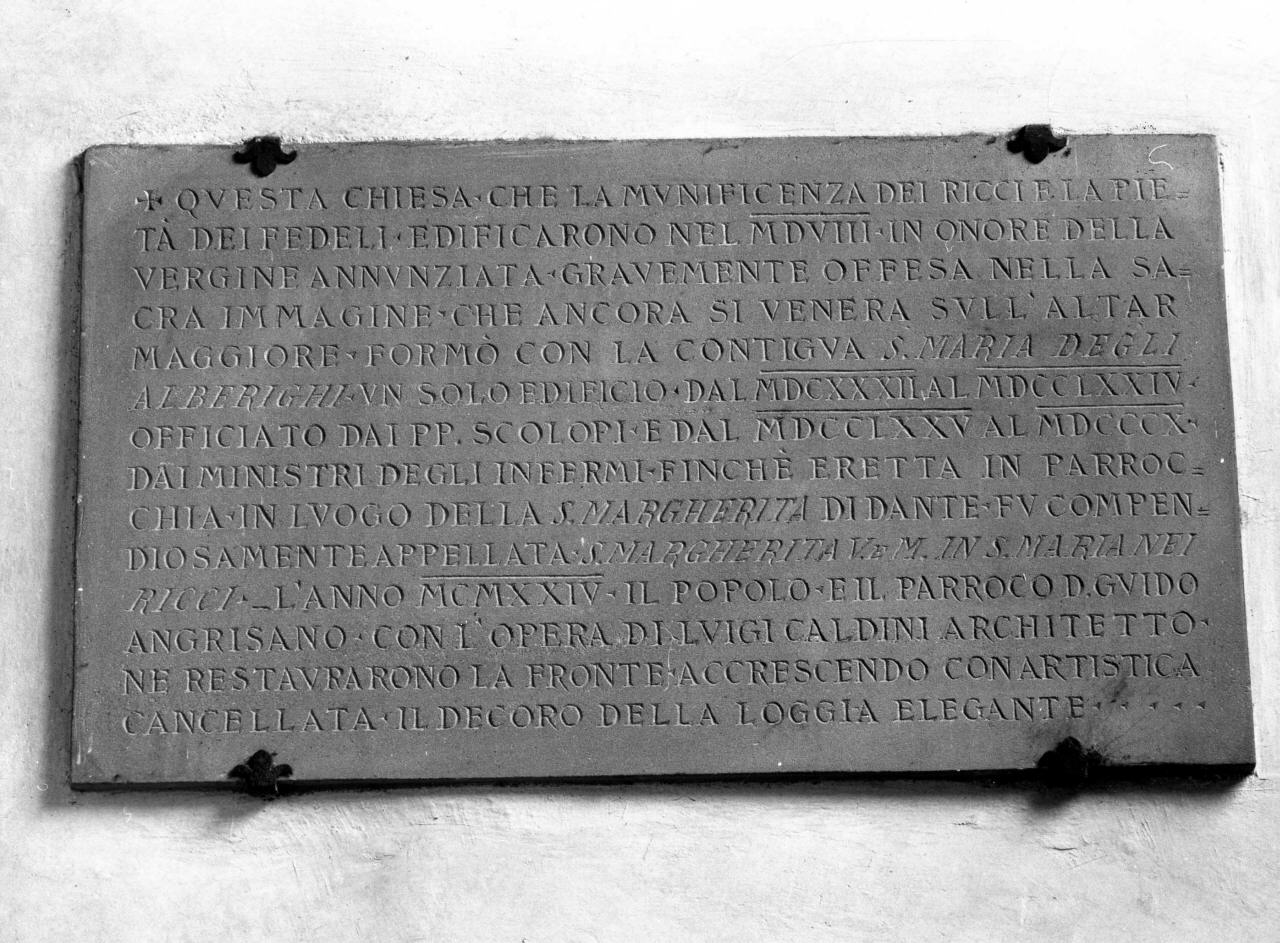 + QVESTA CHIESA·CHE LA MVNIFICENZA DEI RICCI E LA PIE=
TÀ DEI FEDELI·EDIFICARONO NEL MDVIII·IN ONORE DELLA
VERGINE ANNVNZIATA·GRAVEMENTE OFFESA NELLA SA=
CRA IMMAGINE·CHE ANCORA SI VENERA SVLL'ALTAR
MAGGIORE·FORMÒ CON LA CONTIGVA S. MARIA DEGLI
ALBERIGHI·VN SOLO EDIFICIO·DAL MDCXXXII AL MDCCLXXIV·
OFFICIATO DAI PP. SCOLOPI·E DAL MDCCLXXV AL MDCCCX·
DAI MINISTRI DEGLI INFERMI·FINCHÈ ERETTA IN PARROC=
CHIA·IN LVOGO DELLA S. MARGHERITA DI DANTE·FV COMPEN=
DIOSAMENTE APPELLATA·S. MARGHERITA V. E M. IN S. MARIA NEI
RICCI·_L'ANNO MCMXXIV·IL POPOLO·E IL PARROCO D. GVIDO
ANGRISANO·CON L'OPERA DI LVIGI CALDINI ARCHITETTO·
NE RESTAVRARONO LA FRONTE·ACCRESCENDO CON ARTISTICA
CANCELLATA·IL DECORO DELLA LOGGIA ELEGANTE·····